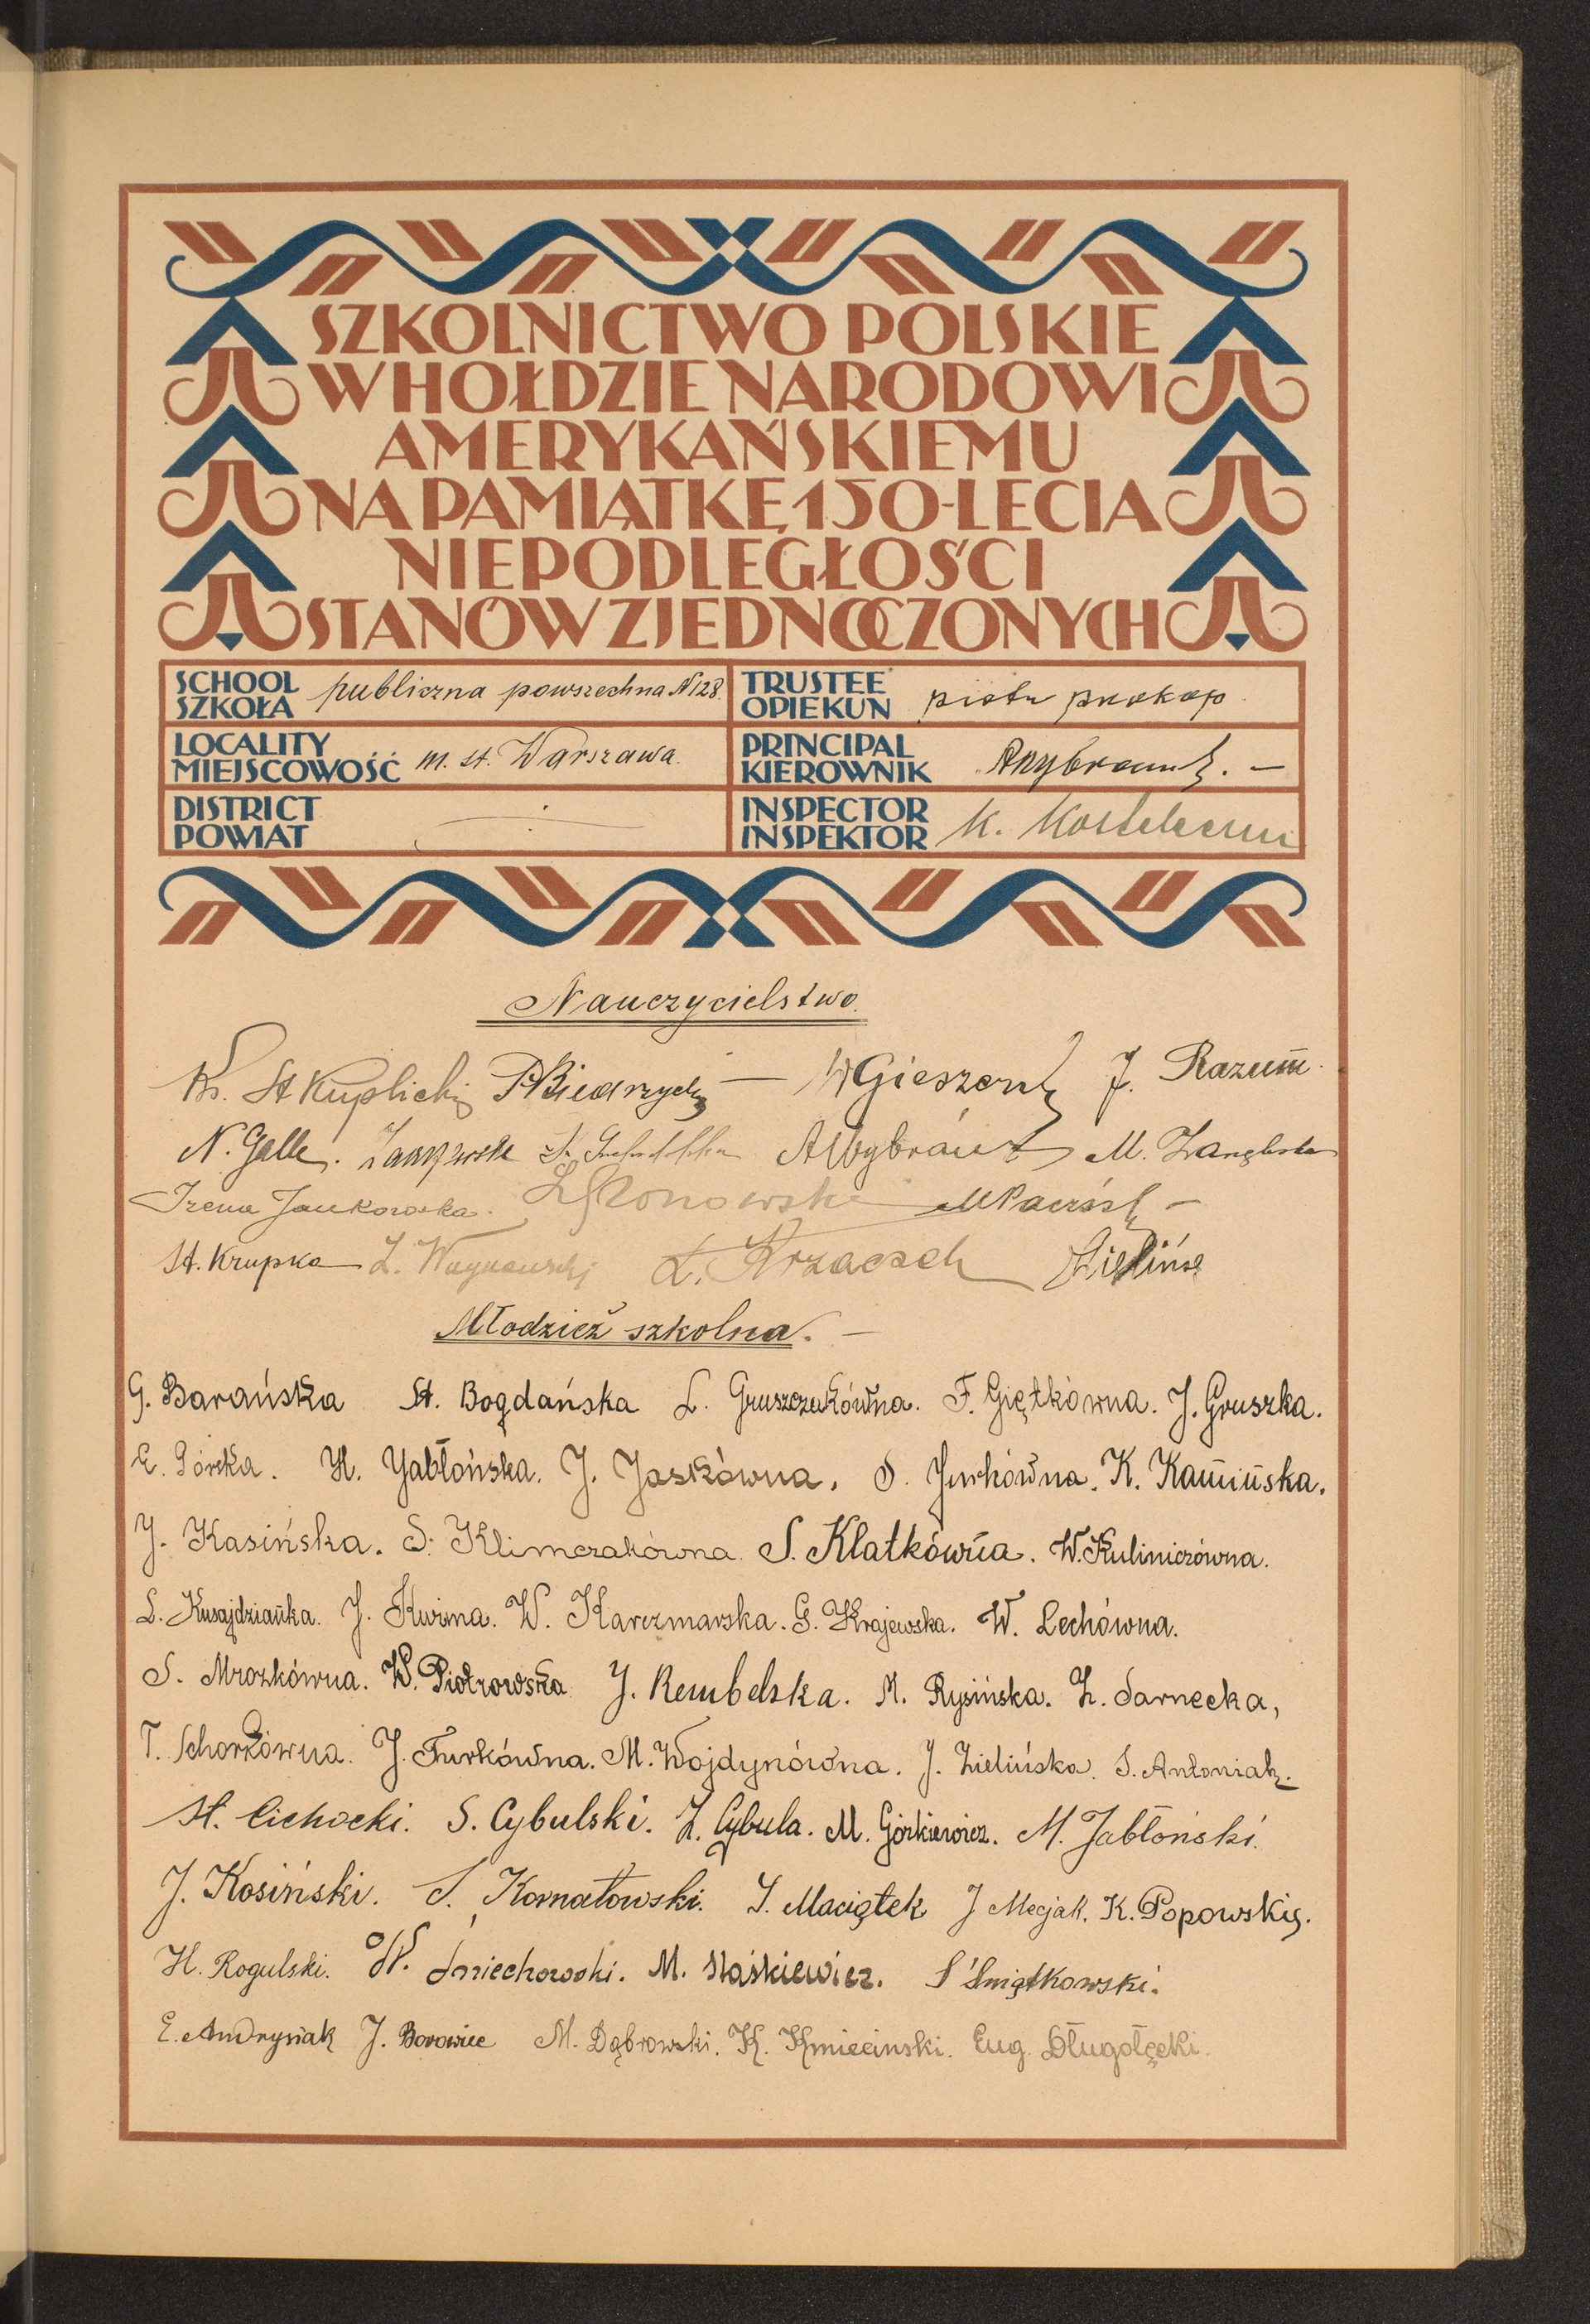 SZKOLNICTWO POLSKIE
W HOŁDZIE NARODOWI
AMERYKAŃSKIEMU
NA PAMIĄTKĘ 150-LECIA
NIEPODLEGŁOŚCI
STANÓW ZJEDNOCZONYCH
SCHOOL SZKOŁA publiczna powszechna N 128.
TRUSTEE OPIEKUN piotr prokop
LOCALITY MIEJSCOWOŚĆ m. st. Warszawa.
PRINCIPAL KIEROWNIK
DISTRICT POWIAT
INSPECTOR INSPEKTOR K.
Nauczycielstwo.
Ks. St Kuplicki J. Razum
N. Galle. M.
Irena Jankowska.
St. Krupka L. Krzaczek
Młodzież szkolna. —
G. Barańska St. Bogdańska L. Gruszczakówna. F. Giętkówna. J. Gruszka.
E. Górska. H. Yabłońska. J. Jaskówna. S. Jurkówna. K. Kamińska.
J. Kasińska. S. Klimczakówna. S. Klatkówna. W. Kuliniczówna.
L. Kusajdzianka. J. Kuźma. W. Karczmarska. G. Krajewska. W. Lechówna.
S. Mrozkówna. W. Piotrowska J. Rembelska. M. Rysińska. Z. Sarnecka,
T. Schorkówna. J. Turkówna. M. Wojdynówna. J. Zielińska. S. Antoniak.
St. Cichocki. S. Cybulski. Z. Cybula. M. Górkiewicz. M. Jabłoński.
J. Kosiński. S. Kornatowski. S. Maciątek J Mecjak. K. Popowski.
H. Rogulski. W. Śmiechowski. M. Staśkiewicz. S Świątkowski.
E. Andrysiak J. Borowiec M. Dąbrowski. K. Kmiecinski. Eug. Długołęcki.